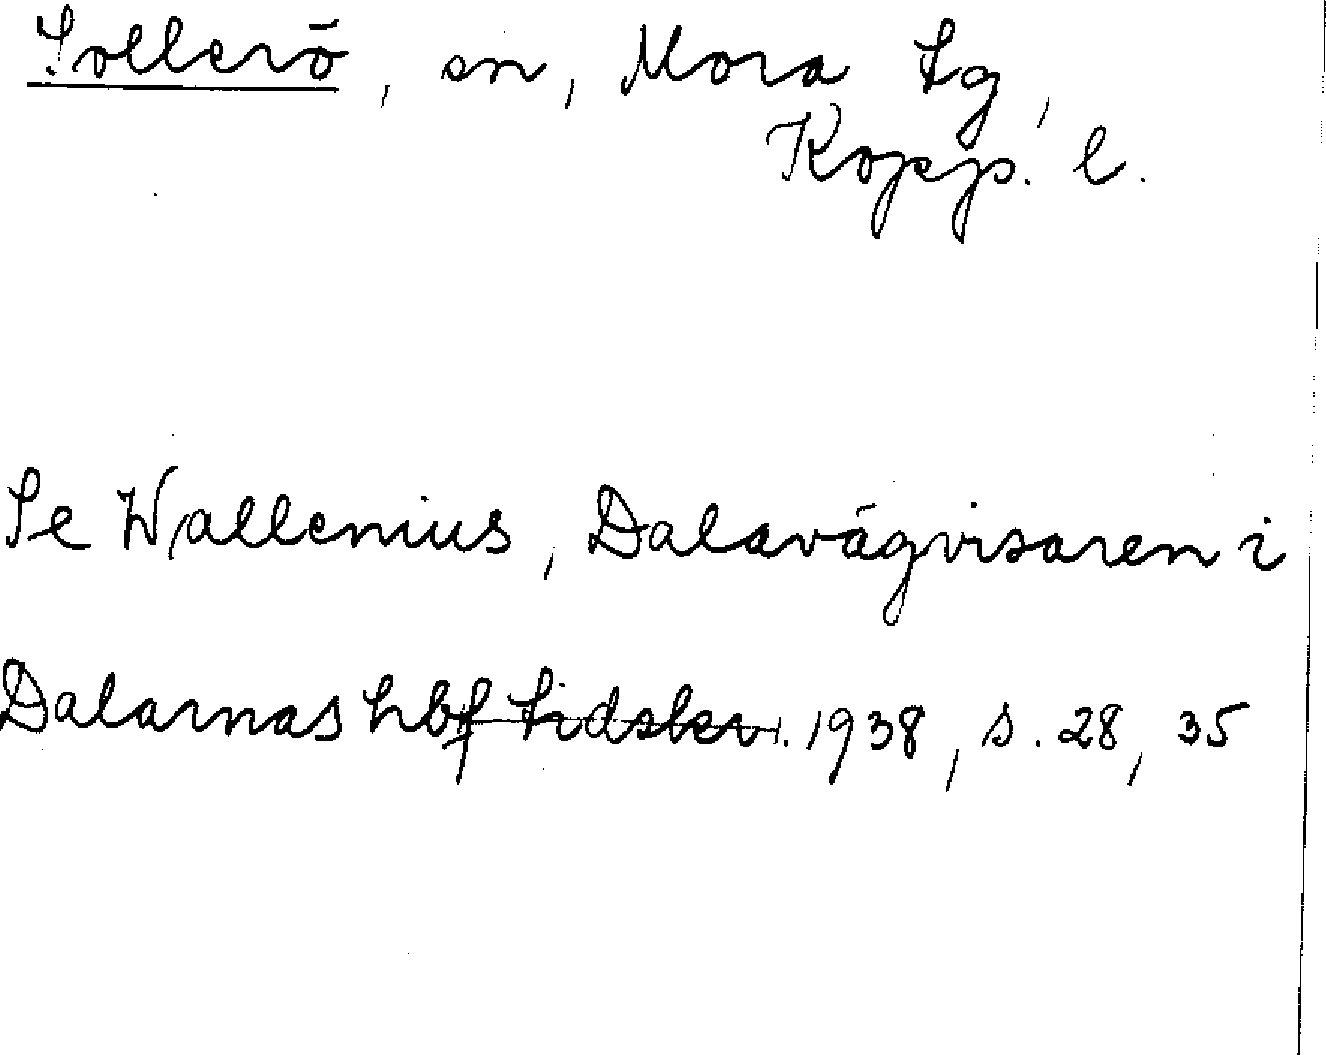 Sollerö, sn, Mora tg,
Kopp. l.
Se Wallenius, Dalavägvisaren i
Dalarnas hbf tidskr. 1938, s. 28, 35